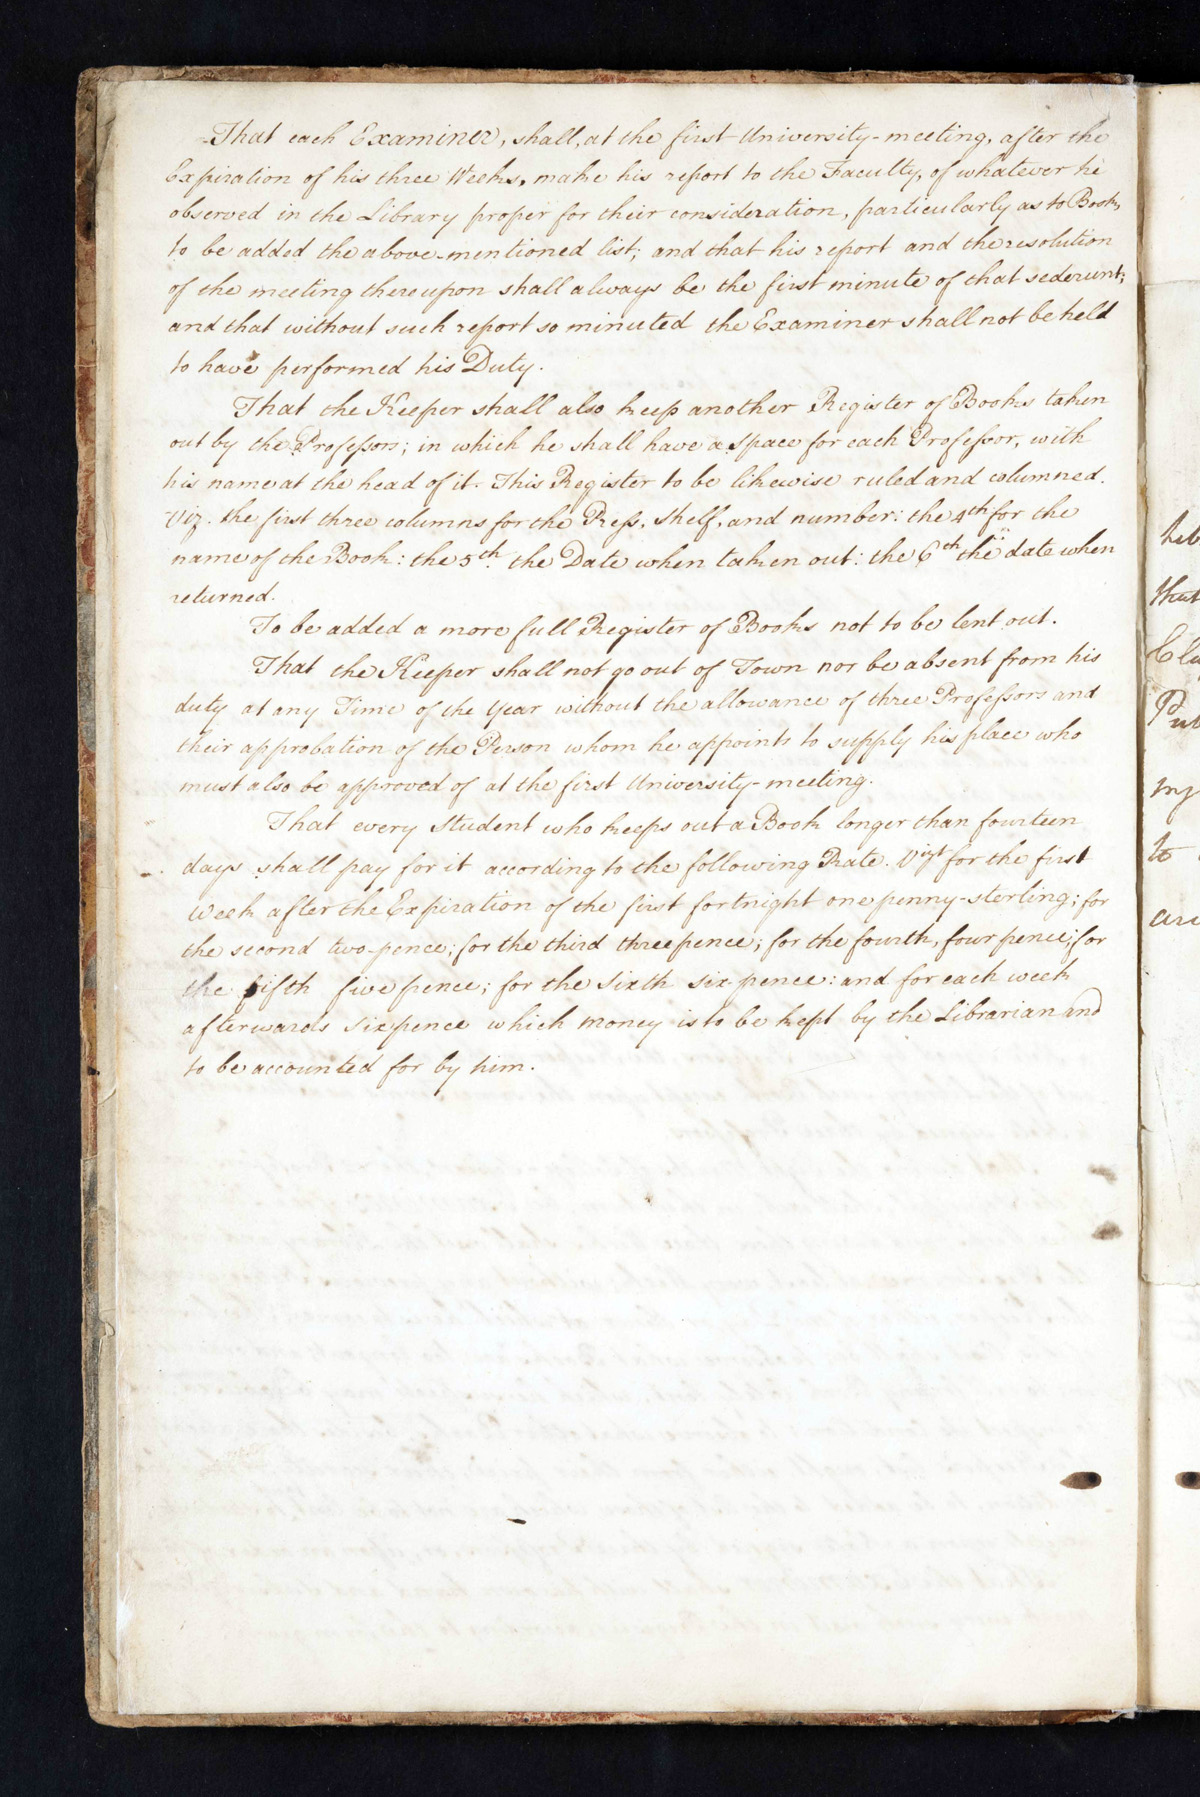 That each Examiner, shall, at the first University-meeting, after the
Expiration of his three Weeks, make his report to the Faculty, of whatever he
observed in the Library proper for their consideration, particularly as to Books
to be added the above-mentioned list; and that his report and the resolution
of the meeting thereupon shall always be the first minute of that sederunt;
and that without such report so minuted the Examiner shall not be held
to have performed his Duty.
That the Keeper shall also keep another Register of Books taken
out by the Professors; in which he shall have a space for each Professor, with
his name at the head of it. This Register to be likewise ruled and columned.
Viz. the first three columns for the Press, Shelf, and number: the 4th for the
name of the Book: the 5th the Date when taken out: the 6th the date when
returned.
To be added a more full Register of Books not to be lent out.
That the Keeper shall not go out of Town nor be absent from his
duty at any Time of the Year without the allowance of three Professors and
their approbation of the Person whom he appoints to supply his place who
must also be approved of at the first University-meeting.
That every Student who keeps out a Book longer than fourteen
days shall pay for it according to the following Rate. Vizt for the first
Week after the Expiration of the first fortnight one penny-sterling; for
the second two-pence; for the third threepence; for the fourth, four pence; for
the fifth five pence; for the Sixth six pence: and for each week
afterwards sixpence which money is to be kept by the Librarian and
to be accounted for by him.
that
my
to